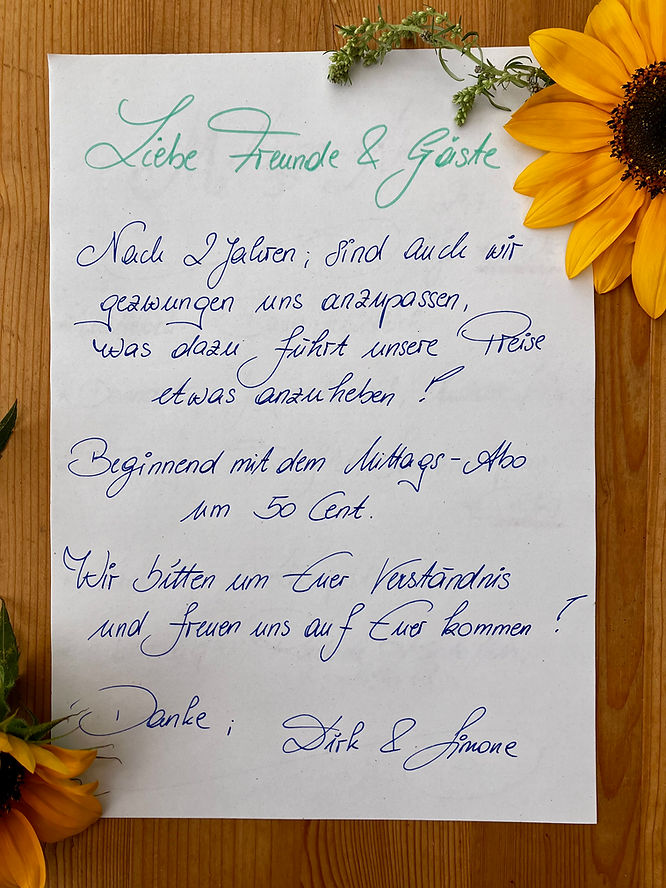 Liebe Freunde & Gäste
Nach 2 Jahren, sind auch wir
gezwungen uns anzupassen,
was dazu führt unsere Preise
etwas anzuheben!
Beginnend mit dem Mittags-Abo
um 50 Cent.
Wir bitten um Euer Verständnis
und freuen uns auf Euer kommen!
Danke, Dirk & Simone